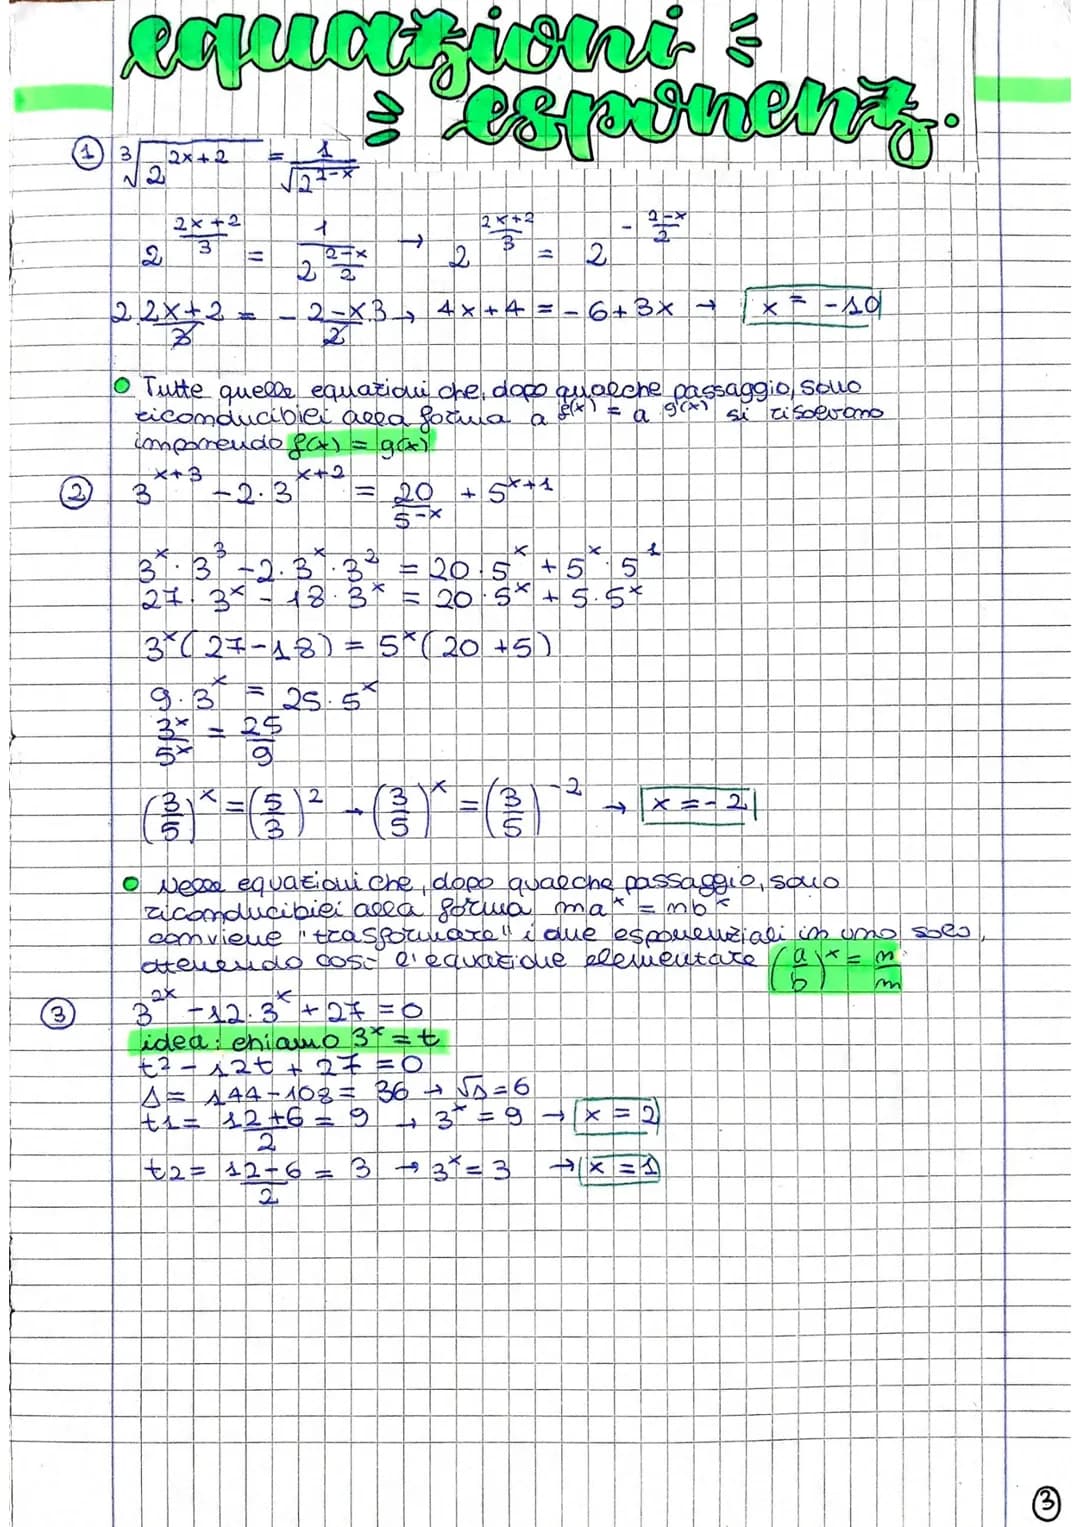 equazioni
esponenz.
① ∛(2^(2x+2)) = 1/√(2^(2-x))
2^((2x+2)/3) = 1/2^((2-x)/2) → 2^((2x+2)/3) = 2^(-(2-x)/2)
2 (2x+2)/3 = - (2-x)/2 3 → 4x+4 = -6+3x → x = -10
Tutte quelle equazioni che, dopo qualche passaggio, sono
riconducibili alla forma a^f(x) = a^g(x) si risolvono
imponendo f(x) = g(x)
② 3^(x+3) - 2·3^(x+2) = 20/5^(-x) + 5^(x+1)
3^x · 3^3 - 2·3^x·3^2 = 20·5^x + 5^x·5^1
27·3^x - 18·3^x = 20·5^x + 5·5^x
3^x(27-18) = 5^x(20+5)
9·3^x = 25·5^x
3^x/5^x = 25/9
(3/5)^x = (5/3)^2 → (3/5)^x = (3/5)^-2 → x = -2
Nelle equazioni che, dopo qualche passaggio, sono
riconducibili alla forma ma^x = nb^x
conviene "trasformare" i due esponenziali in uno solo,
otenendo così l'equazione elementare (a/b)^x = n/m
③ 3^2x - 12·3^x + 27 = 0
idea: chiamo 3^x = t
t² - 12t + 27 = 0
Δ = 144-108 = 36 → √Δ = 6
t1 = (12+6)/2 = 9 → 3^x = 9 → x = 2
t2 = (12-6)/2 = 3 → 3^x = 3 → x = 1
③